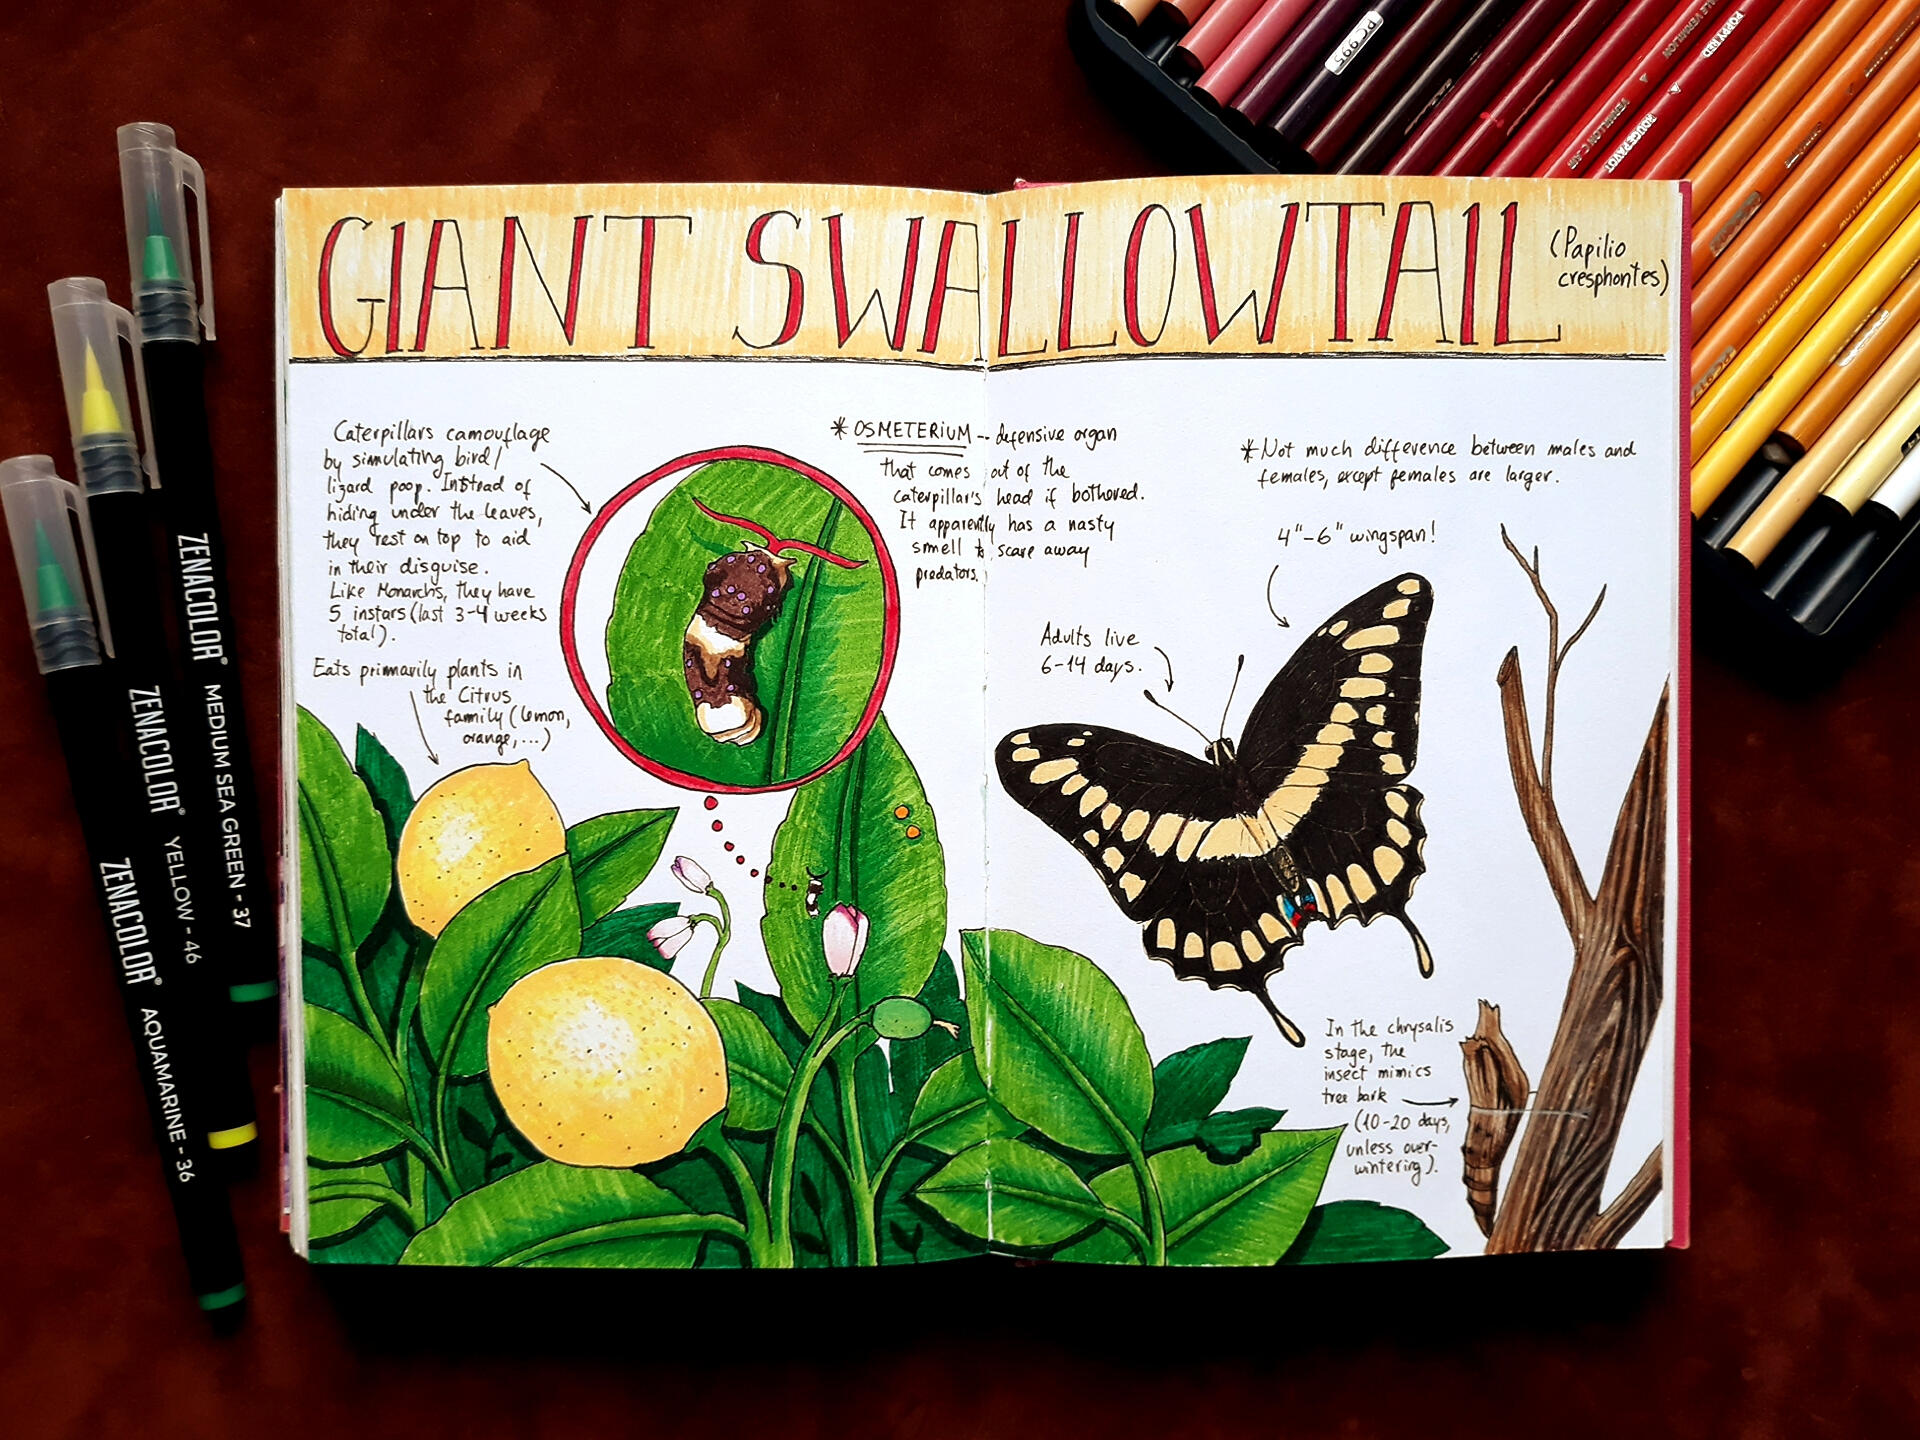 GIANT SWALLOWTAIL
(Papilio
cresphontes)
Caterpillars camouflage
by simulating bird/
lizard poop. Instead of
hiding under the leaves,
they rest on top to aid
in their disguise.
Like Monarchs, they have
5 instars (last 3-4 weeks
total).
Eats primarily plants in
the Citrus
family (lemon,
orange,...)
* OSMETERIUM -- defensive organ
that comes out of the
caterpillar's head if bothered.
It apparently has a nasty
smell to scare away
predators.
* Not much difference between males and
females, except females are larger.
4"-6" wingspan!
Adults live
6-14 days.
In the chrysalis
stage, the
insect mimics
tree bark
(10-20 days,
unless over-
wintering).
ZENACOLOR® MEDIUM SEA GREEN - 37
ZENACOLOR® YELLOW - 46
ZENACOLOR® AQUAMARINE - 36
PC995
POPPY RED